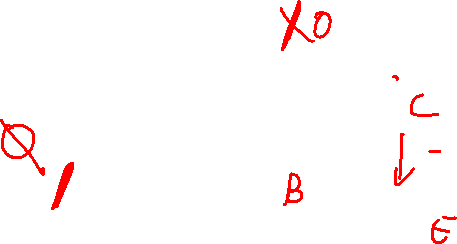 XO
C
B
E